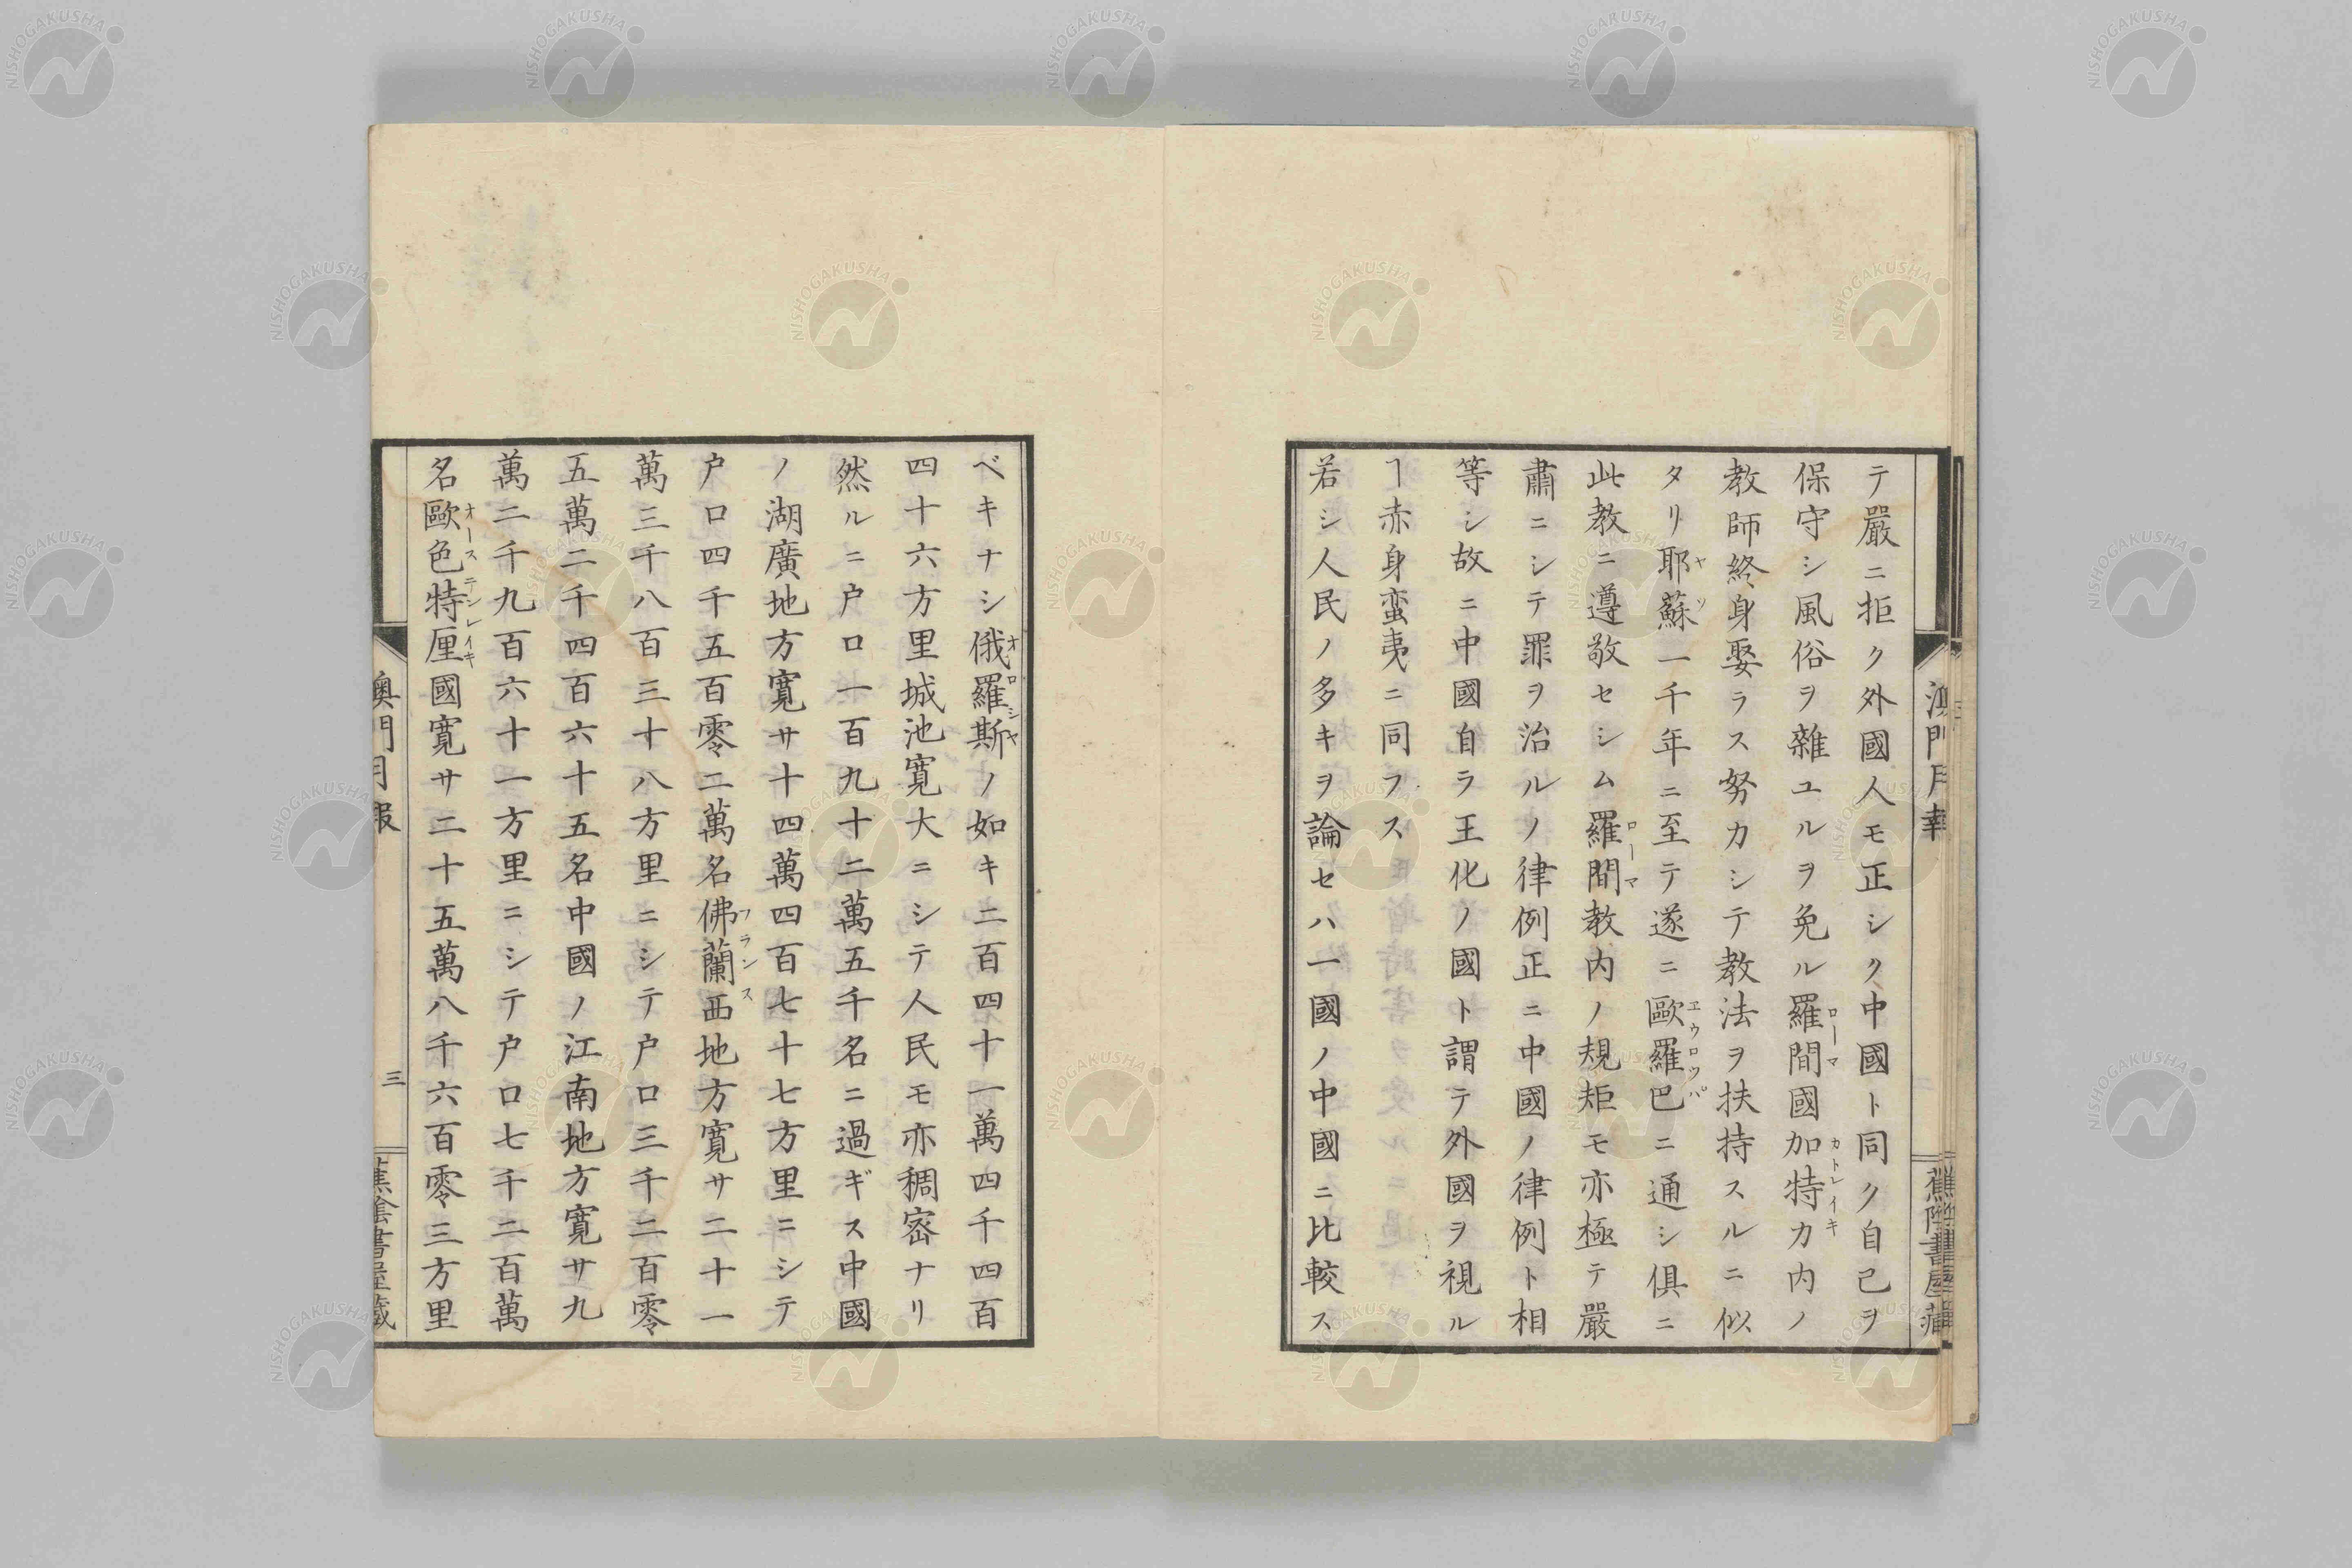 テ嚴ニ拒ク外國人モ正シク中國ト同ク自己ヲ
保守シ風俗ヲ雜ユルヲ免ル羅間國加特力内ノ
ローマ
カトレイキ
教師終身娶ラス努カシテ教法ヲ扶持スルニ似
タリ耶蘇一千年ニ至テ遂ニ歐羅巴ニ通シ俱ニ
ヤソ
エウロツパ
此教ニ遵敬セシム羅間教内ノ規矩モ亦極テ嚴
ローマ
肅ニシテ罪ヲ治ルノ律例正ニ中國ノ律例ト相
等シ故ニ中國自ラ王化ノ國ト謂テ外國ヲ視ル
ヿ赤身蛮夷ニ同フス
若シ人民ノ多キヲ論セハ一國ノ中國ニ比較ス
ベキナシ俄羅斯ノ如キ二百四十一萬四千四百
オロシヤ
四十六方里城池寛大ニシテ人民モ亦稠宻ナリ
然ルニ户口一百九十二萬五千名ニ過ギス中國
ノ湖廣地方寛サ十四萬四百七十七方里ニシテ
户口四千五百零二萬名佛蘭西地方寛サ二十一
フランス
萬三千八百三十八方里ニシテ户口三千二百零
五萬二千四百六十五名中國ノ江南地方寛サ九
萬二千九百六十一方里ニシテ户口七千二百萬
名歐色特厘國寛サ二十五萬八千六百零三方里
オーステンレイキ
澳門月報
三
蕉陰書屋藏
NISHOGAKUSHA